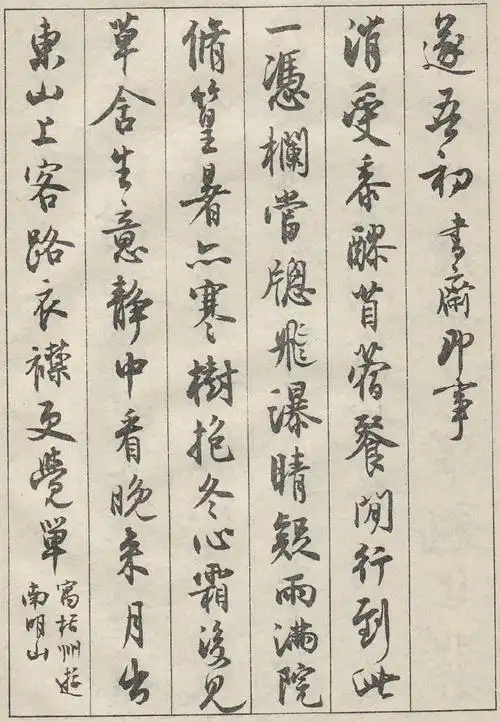 遂吾初書齋即事
消受黍醪苜蓿餐閒行到此
一憑欄當牕飛瀑晴疑雨滿院
脩篁暑亦寒樹抱冬心霜後見
草含生意靜中看晚來月出
東山上客路衣襟更覺單
寓栝州遊
南明山